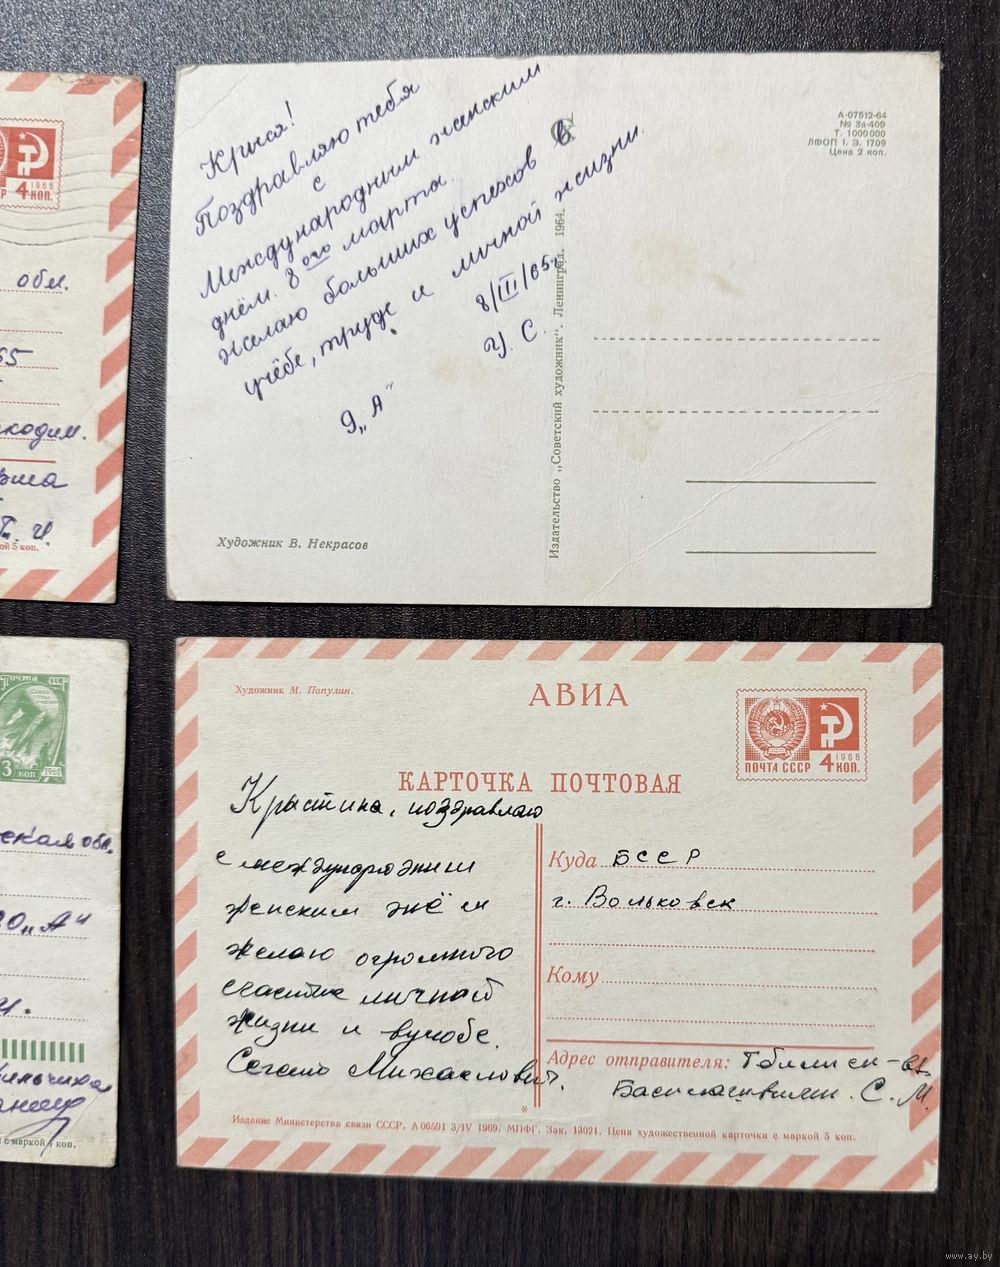 Криса!
Поздравляю тебя
с
Международным женским
днём. 8ого марта.
желаю больших успехов в
учёбе, труде и личной жизни.
8/III/65г.
У. С.
9„А"
Художник В. Некрасов
Издательство „Советский художник". Ленинград. 1964.
А-07512-64
№ 3а-409
Т. 1000000
ЛФОП I. З. 1709
Цена 2 коп.
1966
4 коп.
обл.
ша
Т. И.
ой 5 коп.
Художник М. Папулин.
АВИА
ПОЧТА СССР 4 КОП.
1966
КАРТОЧКА ПОЧТОВАЯ
Крыстина, поздравлаю
с международним
женским днём
желаю огромного
счастия личной
жизни и вучобе.
Сегало Михаслович.
Куда БССР
г. Вольковск
Кому
Адрес отправителя: Тбилиси
С. М.
Издание Министерства связи СССР. А 06591 3/IV 1969. МПФГ. Зак. 13021. Цена художественной карточки с маркой 5 коп.
почта СССР
3 коп 1961
ская обл.
10„А"
и.
с маркой 4 коп.
www.ay.by